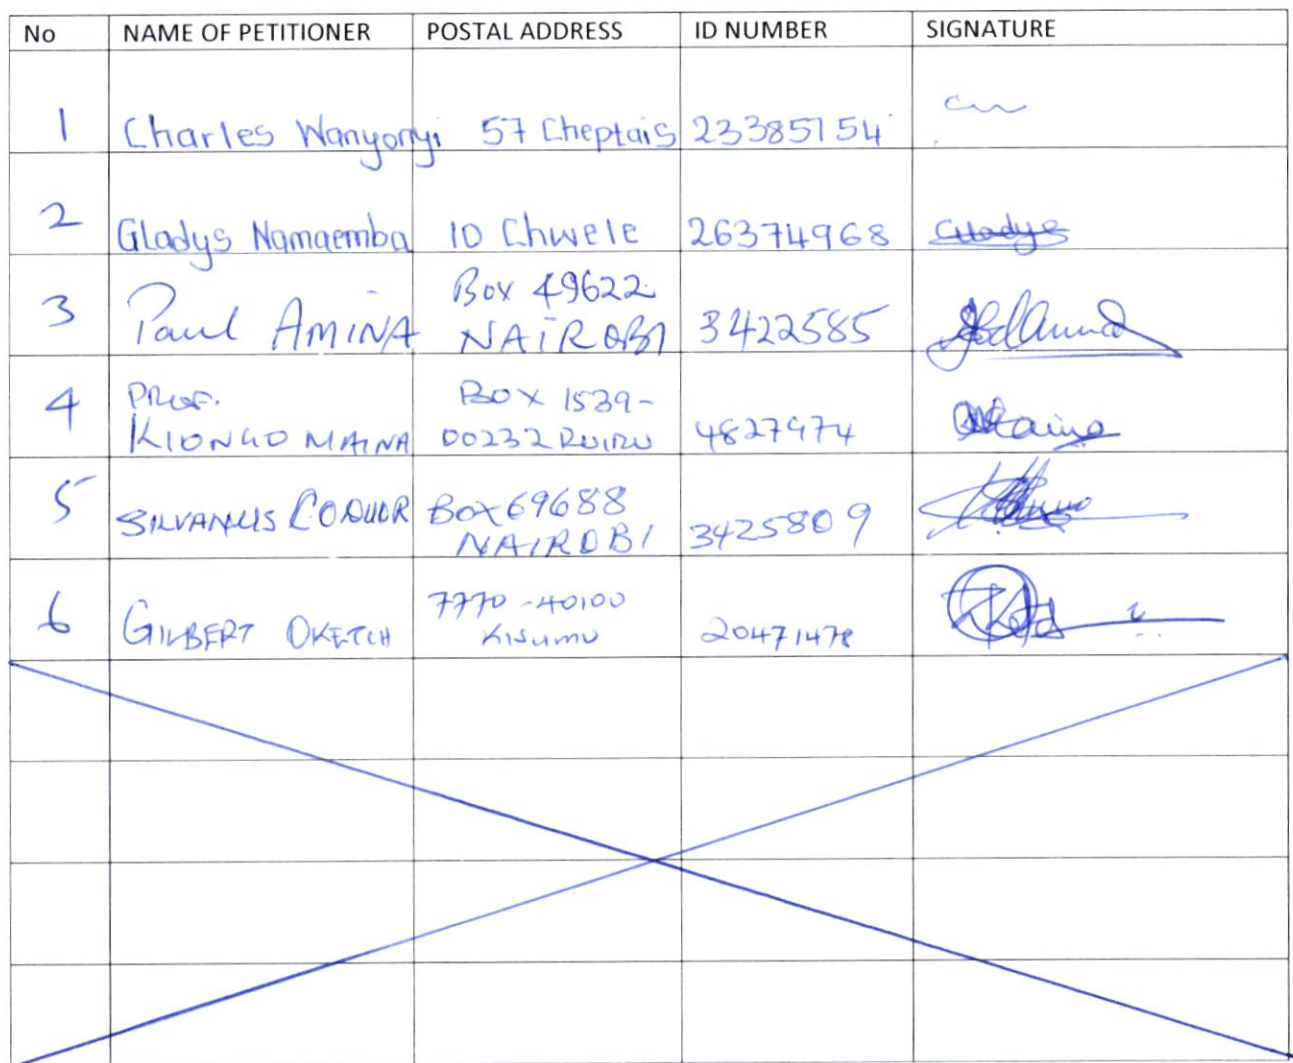 No NAME OF PETITIONER POSTAL ADDRESS ID NUMBER SIGNATURE
1 Charles Wanyonyi 57 Cheptais 23385154
2 Gladys Namaemba 10 Chwele 26374968 Gladys
3 Paul AMINA Box 49622 NAIROBI 3422585
4 PROF. KIONGO MAINA Box 1539-00232 RUIRU 4827974 Maina
5 SILVANUS ODUOR Box 69688 NAIROBI 3425809
6 GILBERT OKETCH 7770-40100 KISUMU 20471478